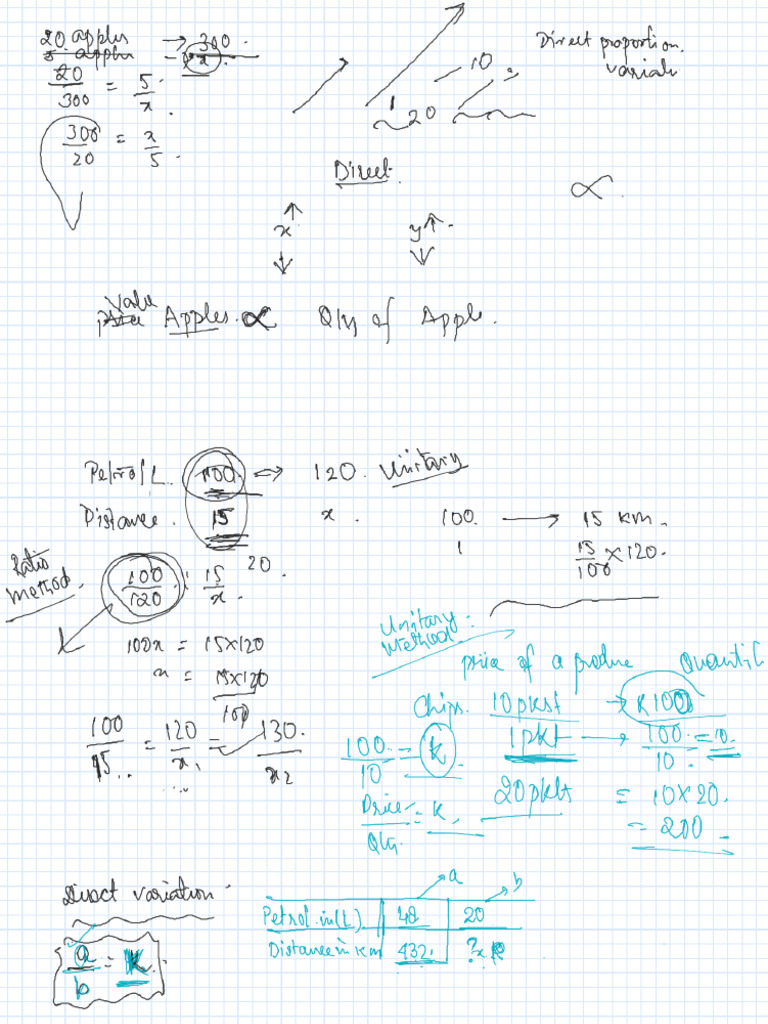 20 apples → 300.
5 apples = x.
20/300 = 5/x.
300/20 = x/5.
10
1 20
Direct proportion.
Direct.
∝.
x↑ y↑.
↓ ↓
Value
price Apples. ∝ Qty of Apple.
Petrol L. 100 → 120.
Distance. 15 x.
Unitary
100. → 15 km.
1 15/100 × 120.
Ratio
Method.
100/120 : 15/x. 20
100x = 15×120
x = 15×120/100
100/15.. = 120/x₁ = 130./x₂
Unitary
Method.
price of a produce
Chips. 10 pkst → 100
1 pkt → 100/10. = 10.
20 pkts = 10 × 20.
= 200
100/10 = k
Price/Qty = K.
Direct variation
a/b = K
a b
Petrol in (L) 48 20
Distance in Km 432. ?x